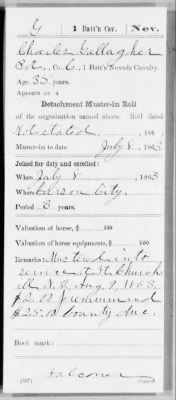 G | 1 Batt'n Cav. | Nev.
Charles Gallagher
, Co. C, 1 Batt'n Nevada Cavalry.
Age 35 years.
Appears on a
Detachment Muster-in Roll
of the organization named above. Roll dated
Not stated, 186
Muster-in to date July 8, 1863
Joined for duty and enrolled:
When July 8, 1863
Where Carson City.
Period 3 years.
Valuation of horse, $ 100
Valuation of horse equipments, $ 100
Remarks: Mustered into
service at Ft. Church
ill N.T. Aug. 7, 1863.
$2.00 premium and
$25.00 bounty due.
Book mark:
Falconer
(357) Copyist.